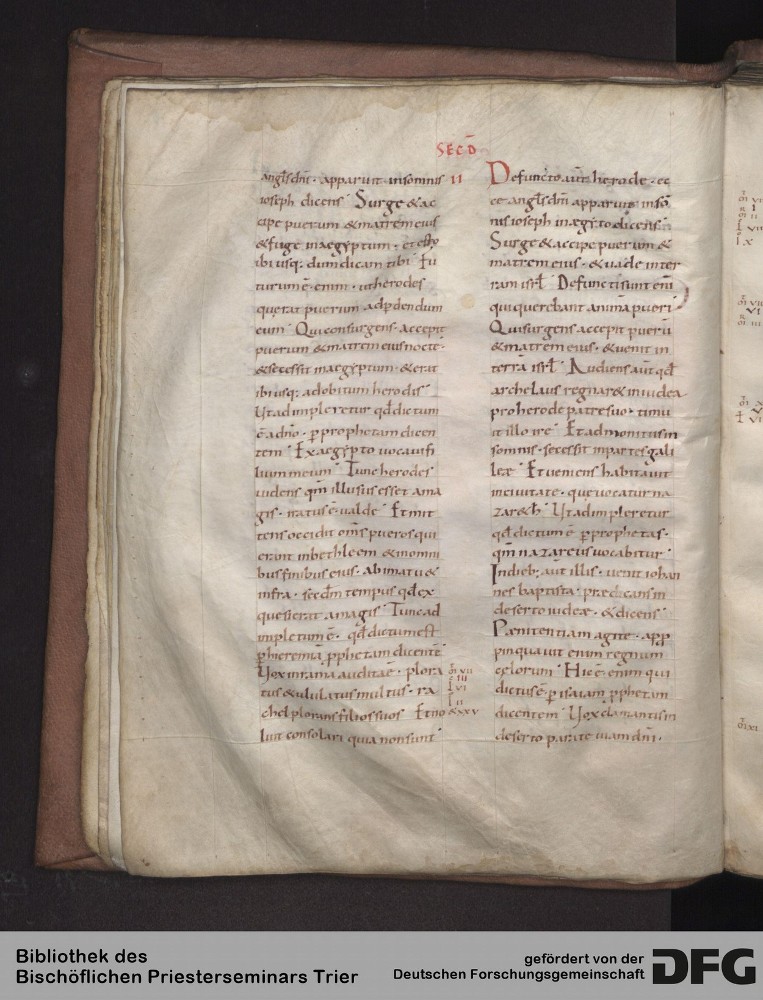 SECD̄
angl̄s dn̄i · apparuit in somnis
ioseph dicens Surge & ac
cipe puerum & matrem eius
& fuge in aegyptum · et esto
ibi usq; dum dicam tibi Fu
turum ē · enim · ut herodes
querat puerum ad pdendum
eum Qui consurgens · accepit
puerum & matrem eius nocte ·
& secessit in aegyptum · & erat
ibi usq; ad obitum herodis
Ut adimpleretur qd̄ dictum
ē a dn̄o · p prophetam dicen
tem Ex aegypto vocavi fi
lium meum Tunc herodes
videns qm̄ illusus esset a ma
gis · iratus ē · valde Et mit
tens occidit om̄s pueros qui
erant in bethleem & in omni
bus finibus eius · a bimatu &
infra · secdm̄ tempus qd̄ ex
quesierat a magis Tunc ad
impletum ē · qd̄ dictum est
p hieremiā pphetam dicentē
Vox in rama audita ē · plora
tus & ululatus multus · ra
chel plorans filios suos Et no
luit consolari quia non sunt
II
Defuncto aūt herode · ec
ce angl̄s dn̄i apparuit in sō
nis ioseph in aegÿto dicens
Surge & accipe puerum &
matrem eius · & vade in ter
ram isrl̄ Defuncti sunt enī
qui querebant animā pueri
Qui surgens accepit puerū
& matrem eius · & venit in
terrā isrl̄ Audiens aūt qd̄
archelaus regnar& in iudea
pro herode patre suo · timu
it illo ire Et admonitus in
somnis · secessit in partes gali
leae Et veniens habitavit
in civitate · que vocatur na
zar&h Ut adimpleretur
qd̄ dictum ē p prophetas ·
qm̄ nazareus vocabitur
In dieb; aūt illis · venit iohan
nes baptista · praedicans in
deserto iudeae · & dicens
Paenitentiam agite · app
pinquavit enim regnum
celorum Hic ē · enim qui
dictus ē · p isaiam pphetam
dicentem Vox clamantis in
deserto parate viam dn̄i ·
Bibliothek des
Bischöflichen Priesterseminars Trier
gefördert von der
Deutschen Forschungsgemeinschaft
DFG